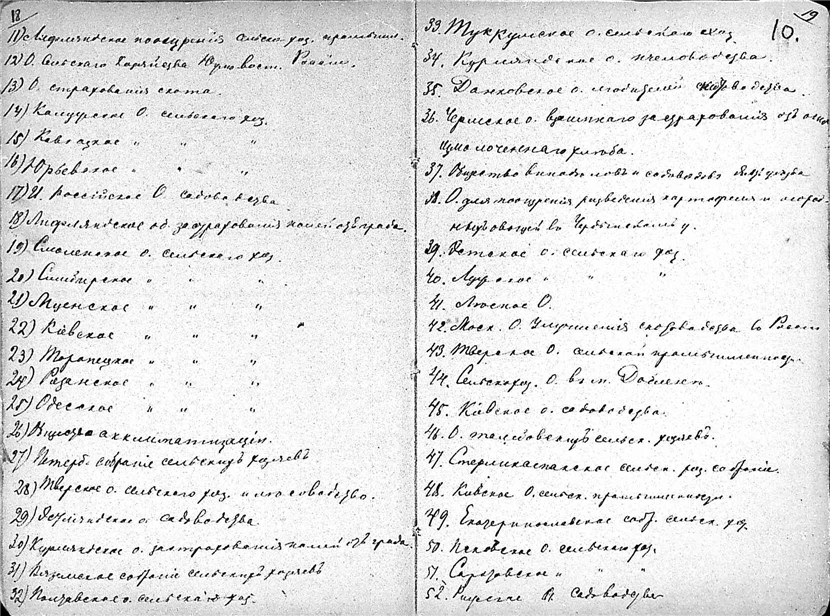 18
11) Лифляндское поощренія сельск. хоз. промышл.
12) О. Сельскаго Хозяйства Юговост. Россіи.
13) О. страхованія скота.
14) Калужское О. сельскаго хоз.
15) Кавказское " " "
16) Юрьевское " " "
17) И. Россійское О. садоводства
18) Лифляндское об. застрахованія полей отъ града.
19) Смоленское о. сельскаго хоз.
20) Симбирское " " "
21) Мценское " " "
22) Кіевское " " "
23) Торопецкое " " "
24) Рязанское " " "
25) Одесское " " "
26) Общество акклиматизаціи.
27) Петерб. собраніе сельскихъ хозяевъ
28) Тверское о. сельскаго хоз. и лѣсоводство.
29) садоводства
30) Курляндское о. застрахованія полей отъ града.
31) Вяземское собраніе сельскихъ хозяевъ
32) Полтавское о. сельскаго хоз.
19
10.
33. Туккумское о. сельскаго хоз.
34. Курляндское о. пчеловодства.
35. Данковское о. любителей
36. о. взаимнаго застрахованія отъ огня
измолоченнаго хлѣба.
37. Общество виноделовъ и садоводовъ
38. О. для поощренія разведенія картофеля и огород-
ныхъ овощей въ у.
39. о. сельскаго хоз.
40. " "
41. Лѣсное О.
42. Моск. О. улучшенія скотоводства въ Россіи
43. Тверское О. сельской промышленности.
44. Сельскохоз. О. въ м.
45. Кіевское о. садоводства.
46. О. сельск. хозяевъ.
47. Стерлитамакское сельск. хоз. собраніе.
48. Кіевское О. сельск. промышленности.
49. Екатеринославское собр. сельск. хоз.
50. Псковское О. сельскаго хоз.
51. Саратовское " "
52. садоводства